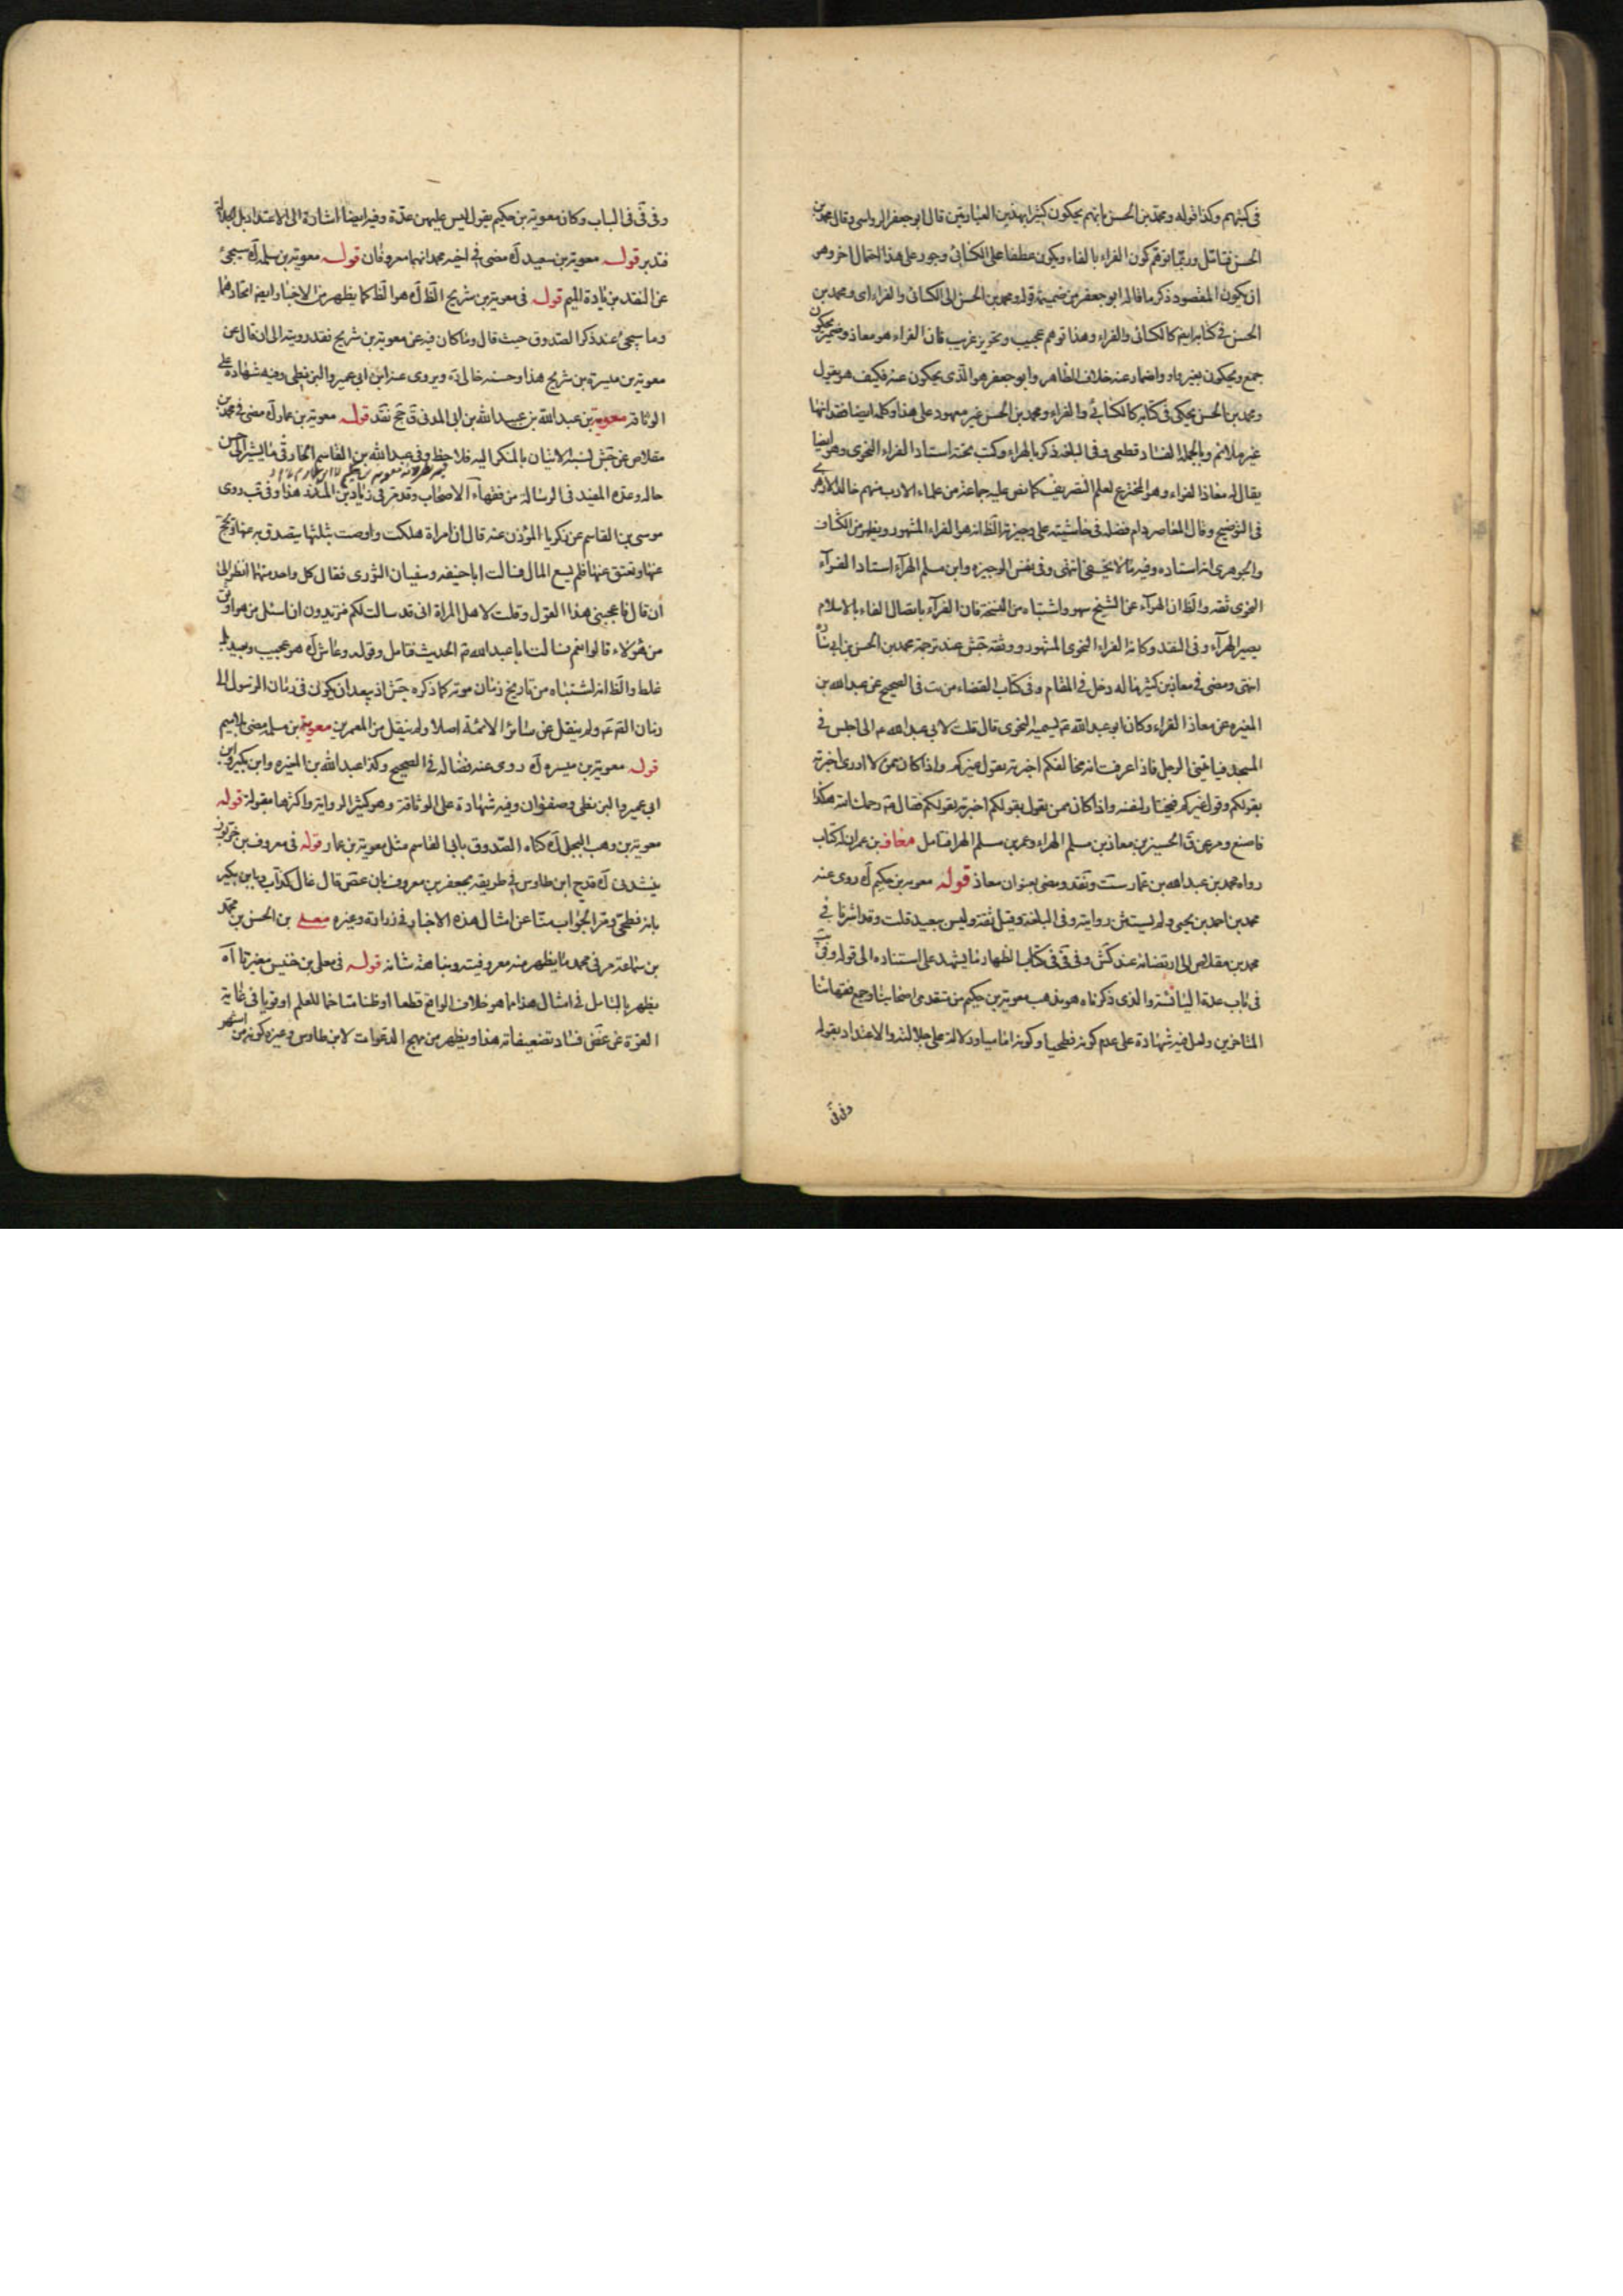 في كتبهم وكذا قوله ومحمد بن الحسن فانهم يحكون كثيرا بهذين العبارتين قال ابو جعفر الرواسى وقال محمد بن
الحسن فتامل وربما توهم كون الفراء بالفاء ويكون عطفا على الكسائى وجوز على هذا احتمال اخر وهو
ان يكون المقصود ذكر ما قاله ابو جعفر من ضميمة قوله ومحمد بن الحسن الى الكسائى والفراء اى ومحمد بن
الحسن في كتابه ايضا كالكسائى والفراء وهذا توهم عجيب وتجويز غريب فان الفراء هو معاذ وضمير يحكون
جمع ويحكون بغير واو واضمار عنه خلاف الظاهر وابو جعفر هو الذى يحكون عنه فكيف هو يقول
ومحمد بن الحسن يحكى فى كتابه كالكسائى والفراء ومحمد بن الحسن غير معهود على هذا وكلمة ايضا
غير ملائم وبالجملة الفساد قطعى وفى البلغة ذكر بالهراء وكتب تحته استاد الفراء النحوى وهو ايضا
يقال له معاذ الفراء وهو المخترع لعلم التصريف كما نص عليه جماعة من علماء الادب منهم خالد الازهرى
فى التوضيح وقال المعاصر دام فضله فى حاشيته على وجيزة الظ انه هو الفراء المشهور ويظهر من الكشاف
والجوهرى انه استاده وفيه ما لا يخفى انتهى وفى نفس الوجيزه وابن مسلم الهرآء استاد الفرآء
النحوى ثقة والظ ان الهرآء عن الشيخ سهو واشتباه من النسخة فان الفرآء باتصال الفاء بالاسلام
يصير الهرآء وفى النقد وكانه الفراء النحوى المشهور ووثقه جش عند ترجمة محمد بن الحسن بن ابى سارة
انتهى ومضى فى معاذ بن كثير ما له دخل فى المقام وفى كتاب القضاء من يب فى الصحيح عن عبد الله بن
المغيرة عن معاذ الفراء وكان ابو عبد الله ع يسميه النحوى قال قلت لابى عبد الله ع انى اجلس فى
المسجد فياتينى الرجل فاذا عرفت انه يخالفكم اخبرته بقول غيركم واذا كان ممن لا ادرى اخبرته
بقولكم وقول غيركم فيختار لنفسه واذا كان ممن يقول بقولكم اخبرته بقولكم فقال ع رحمك الله هكذا
فاصنع ومر عن ق الحسين بن معاذ بن مسلم الهراء وعمر بن مسلم الهرا فتامل معاف بن عمران له كتاب
رواه محمد بن عبد الله بن عمار ست ونقد ومضى بعنوان معاذ قوله معوية بن حكيم آه روى عنه
محمد بن احمد بن يحيى ولم يستثن روايته وفى البلغة وقيل ثقة وليس ببعيد قلت وقد اشرنا فى
محمد بن مقلاص الى ارتضائه عند كش وفى فى كتاب الظهار ما يشهد على استناده الى قوله وفى يب
فى باب عدة اليائسة والذى ذكرناه هو مذهب معوية بن حكيم من متقدمى اصحابنا وجميع فقهائنا
المتاخرين ولعل فيه شهادة على عدم كونه فطحيا وكونه اماميا ودلالة على جلالته والاعتداد بقوله
وفى فى
وفى فى فى الباب وكان معوية بن حكيم يقول ليس عليهن عدة وفيه ايضا اشارة الى الاعتداد بل الجلالة
فتدبر قوله معوية بن سعيد آه مضى فى اخيه محمد انهما معروفان قوله معوية بن سلمة آه سيجئ
عن النقد بن زيادة الميم قوله فى معوية بن شريح الظ آه هو الظ كما يظهر من الاخبار ايضا اتحادهما
وما سيجئ عند ذكر الصدوق حيث قال وما كان فيه عن معوية بن شريح فقد رويته الى ان قال عن
معوية بن ميسرة بن شريح هذا وحسنه خالى ره ويروى عنه ابن ابى عمير والبزنطى وفيه شهادة على
الوثاقة معوية بن عبد الله بن عبيد الله بن ابى المدنى ق جخ نقد قوله معوية بن عمار آه مضى فى محمد بن
مقلاص عن جش نسبة الاتيان بالمنكر اليه فلاحظ وفى عبد الله بن القاسم الحارثى ما يشير الى حسن
حاله وعده المفيد فى الرسالة من فقهاء الاصحاب وقد مر فى زياد بن المنذر هذا وفى يب روى
موسى بن القاسم عن زكريا المؤذن عنه قال ان امراة هلكت واوصت بثلثها يتصدق به عنها ويحج
عنها ويعتق عنها فلم يسع المال فسالت ابا حنيفة وسفيان الثورى فقال كل واحد منهما انظر الى
ان قال فاعجبنى هذا القول وقلت لاهل المراة انى قد سالت لكم فتريدون ان اسئل من هو اوثق
من هؤلاء قالوا نعم فسالت ابا عبد الله ع الحديث فتامل وقوله وعاش آه هو عجيب وبعيد بل
غلط والظ انه اشتباه من تاريخ زمان موته كما ذكره جش اذ يبعد ان يكون فى زمان الرسول الى
زمان القم ع ولم ينقل عن سائر الائمة اصلا ولم ينقل من المعمرين معوية بن مسلمة مضى بلا ميم
قوله معوية بن ميسرة آه روى عنه فضاله فى الصحيح وكذا عبد الله بن المغيرة وابن بكير وابن
ابى عمير والبزنطى وصفوان وفيه شهادة على الوثاقة وهو كثير الرواية واكثرها مقبولة قوله
معوية بن وهب البجلى آه كناه الصدوق بابا القاسم مثل معوية بن عمار قوله فى معروف بن خربوذ
آه قدح ابن طاوس فى طريقه بجعفر بن معروف بان غض قال غال كذاب وبابن بكير
بانه فطحى ومر الجواب منا عن امثال هذه الاخبار فى زرارة وغيره معلى بن الحسن بن محمد
بن سماعة مر فى محمد ما يظهر منه معروفيته ونباهة شانه قوله فى معلى بن خنيس مغيريا آه
يظهر بالتامل فى امثال هذا مما هو خلاف الواقع قطعا او ظنا متاخما للعلم او قويا فى غاية
القوة عن غض فساد تضعيفاته هذا ويظهر من مهج الدعوات لابن طاوس وغيره كونه من اشهر